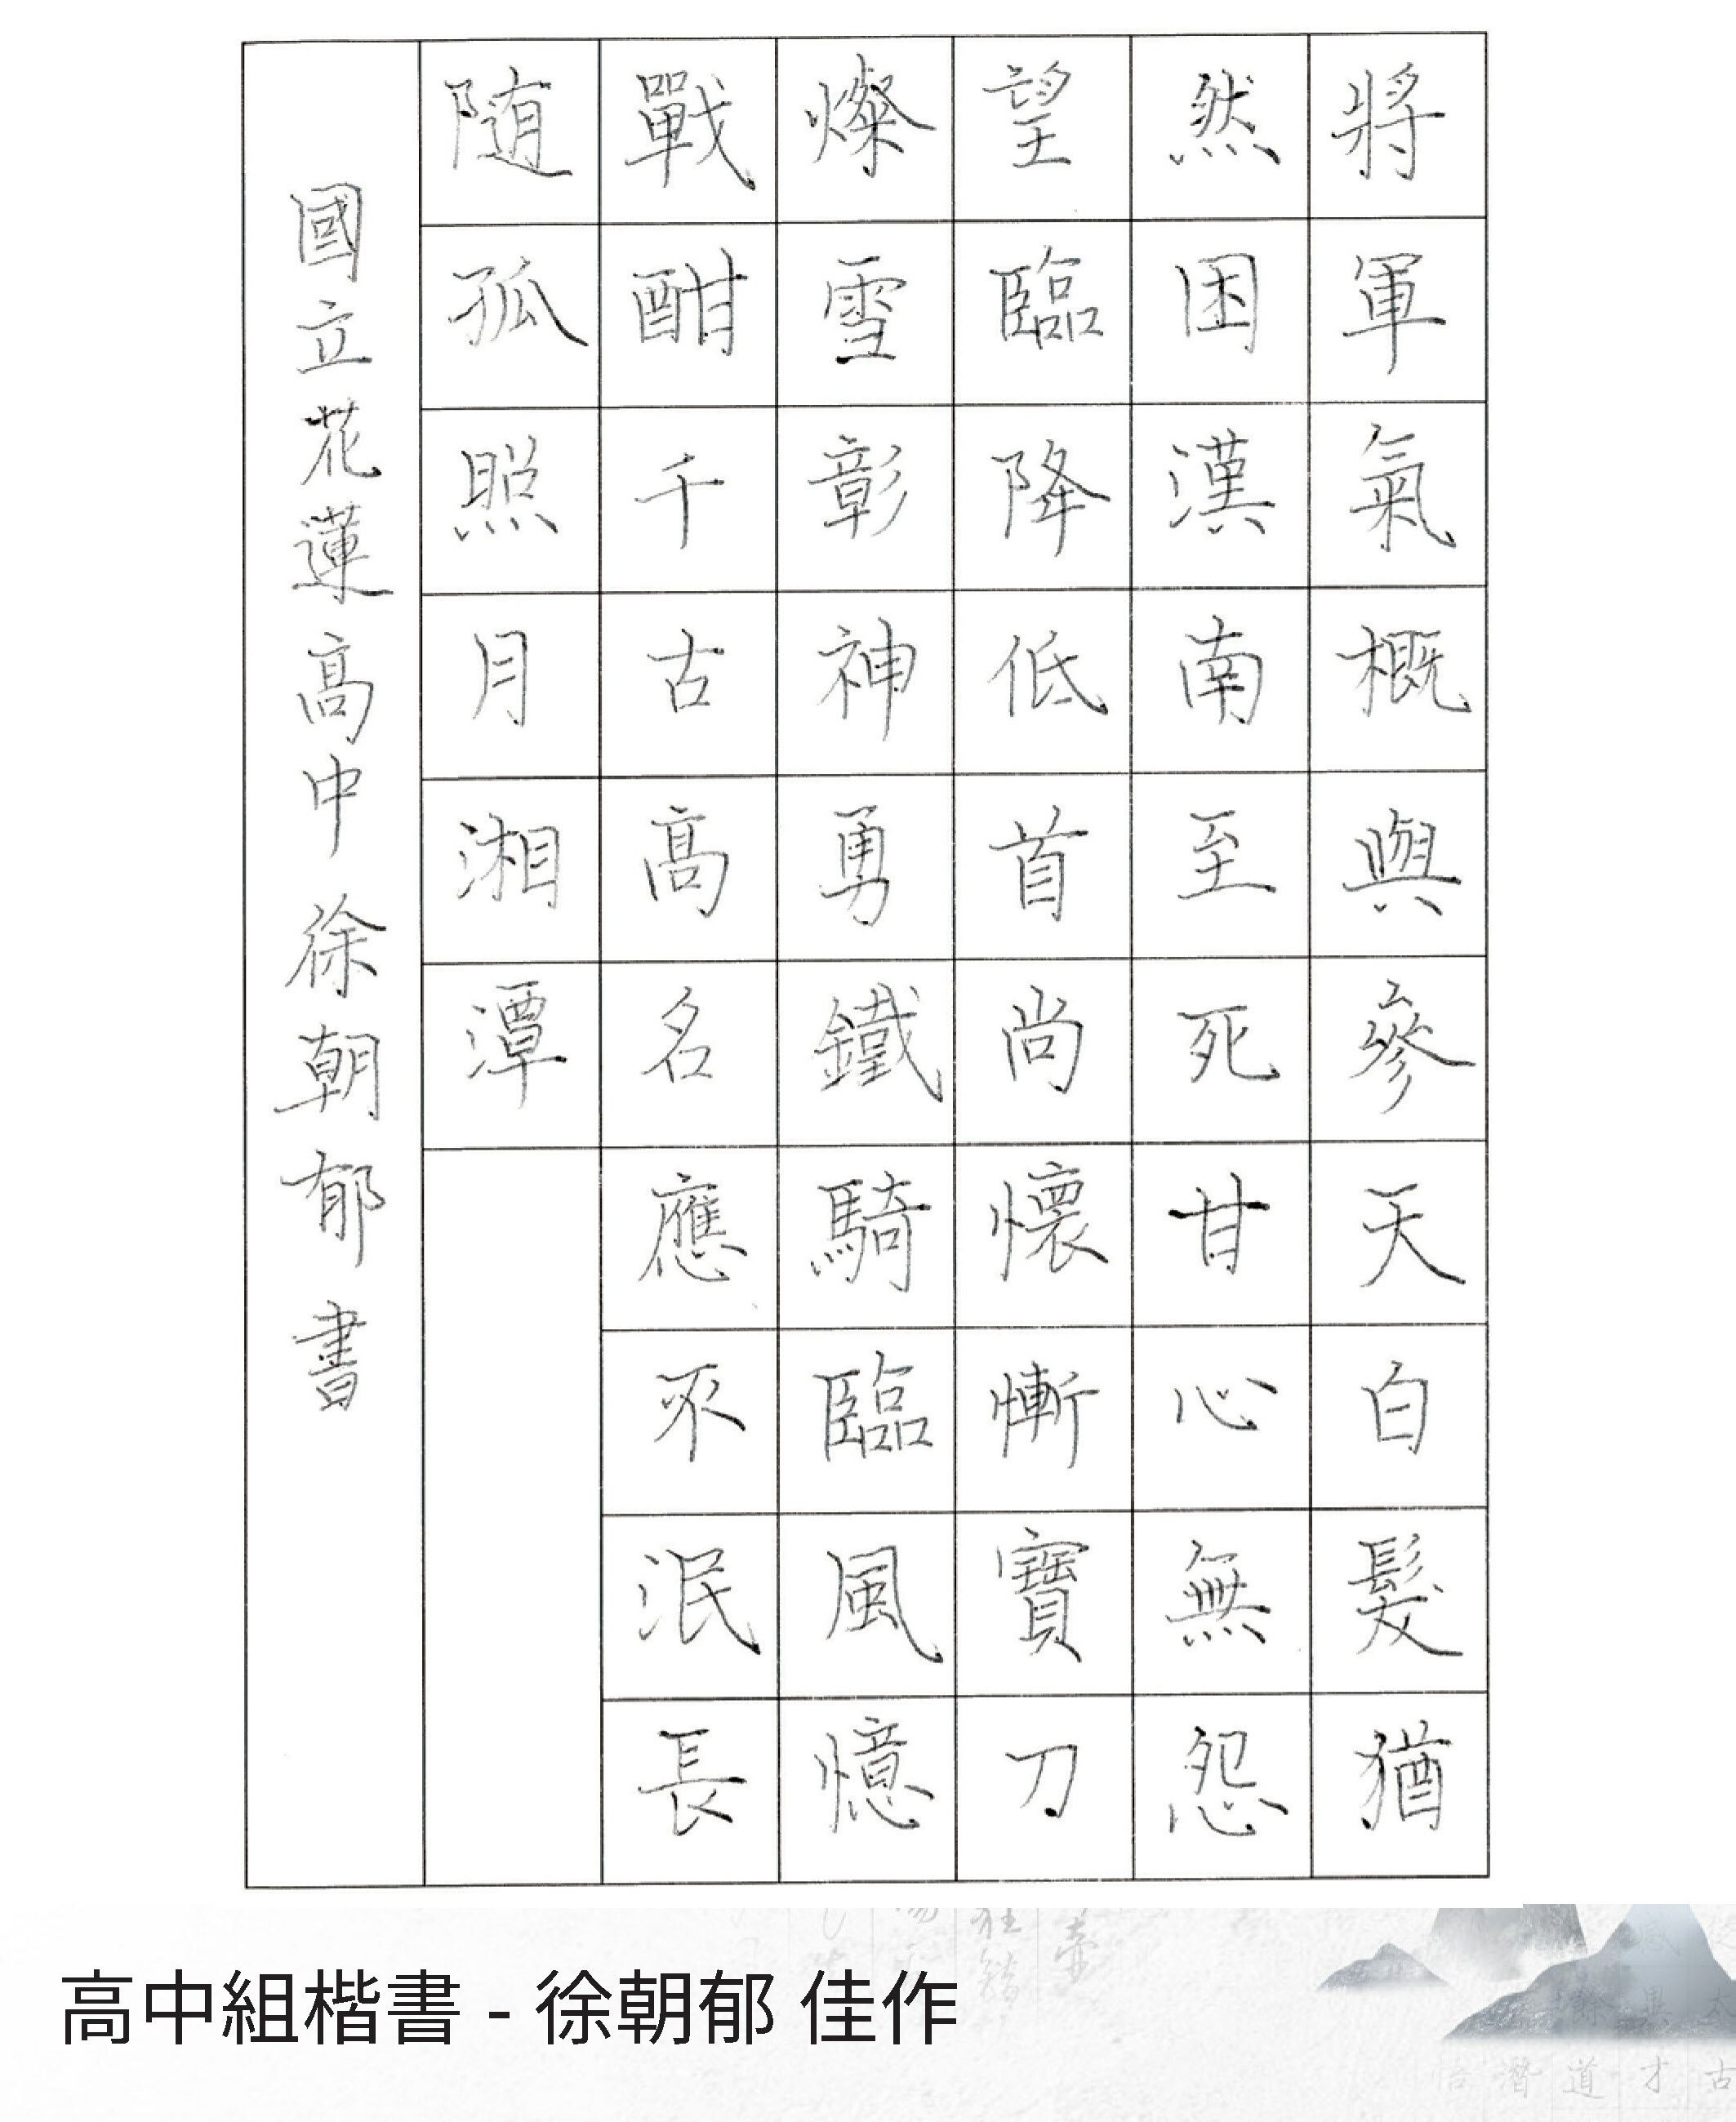 將軍氣概與參天白髮猶
然困漢南至死甘心無怨
望臨降低首尚懷慚寶刀
燦雪彰神勇鐵騎臨風憶
戰酣千古高名應不泯長
隨孤照月湘潭
國立花蓮高中 徐朝郁 書
高中組楷書 - 徐朝郁 佳作